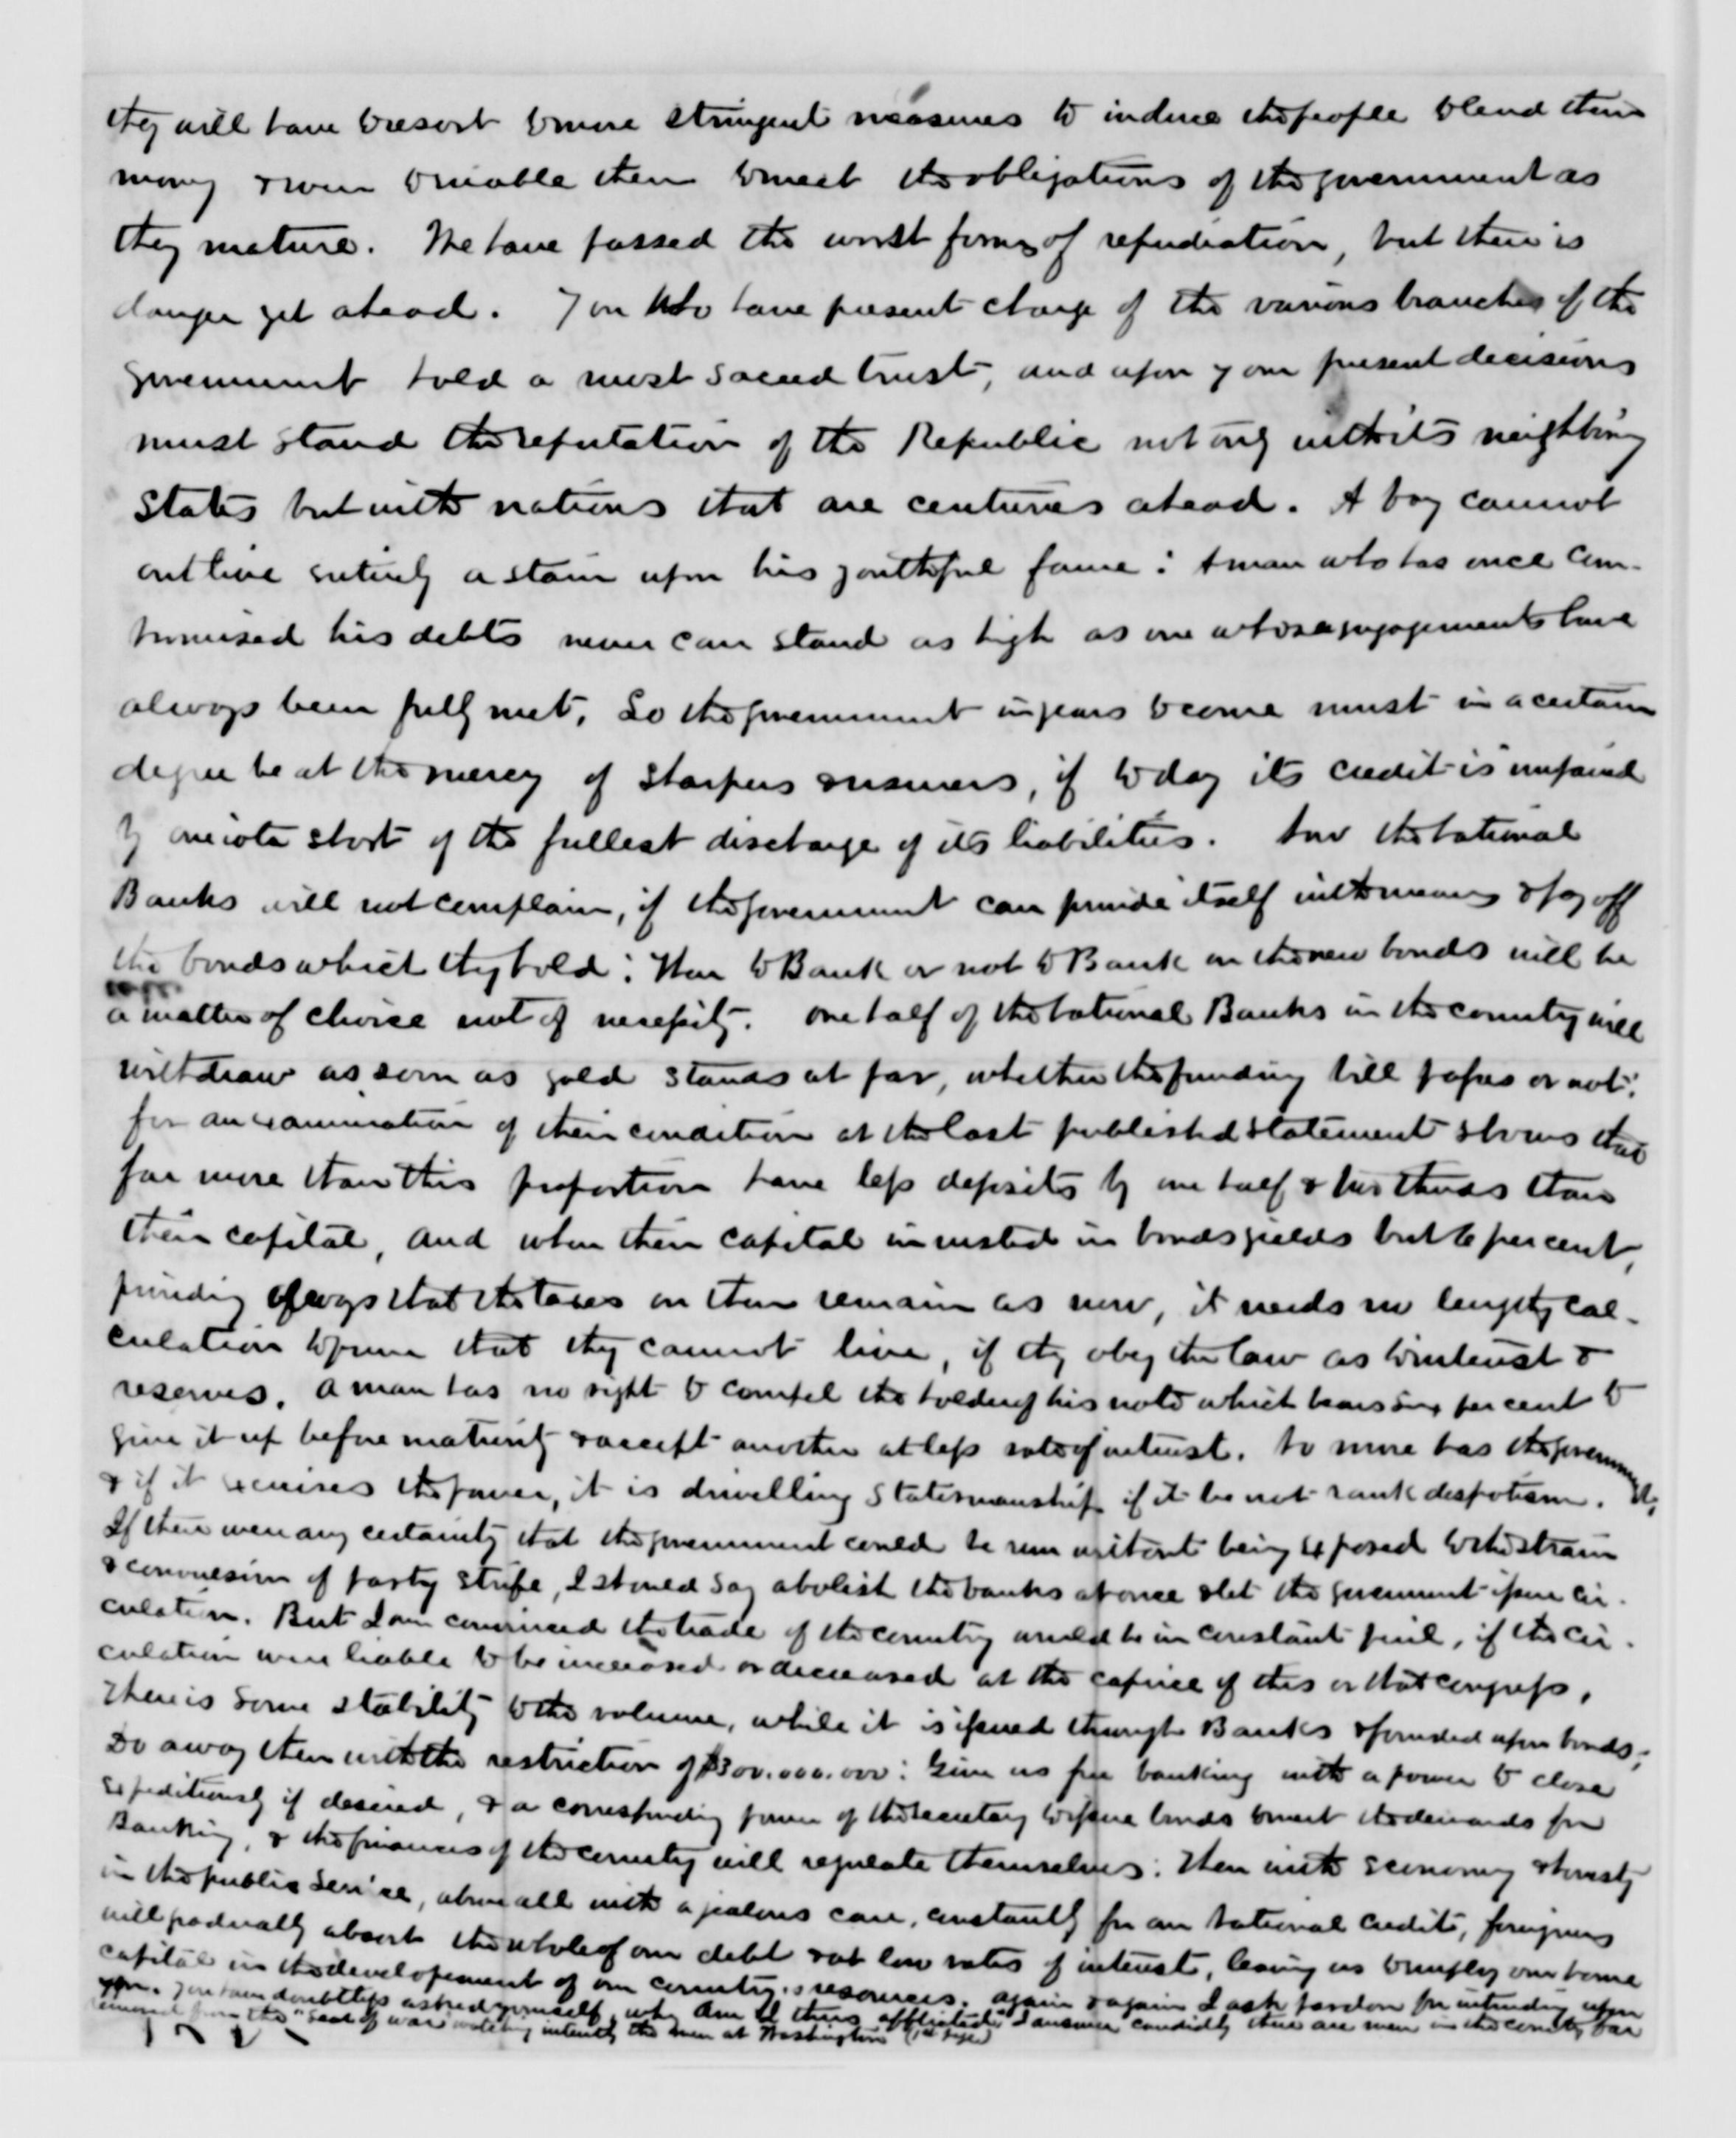 they will have to resort to more stringent measures to induce the people to lend their
money & even to enable them to meet the obligations of the government as
they mature. We have passed the worst forms of repudiation, but there is
danger yet ahead. You who have present charge of the various branches of the
government hold a most sacred trust, and upon your present decisions
must stand the reputation of the Republic not only with its neighboring
States but with nations that are centuries ahead. A boy cannot
outlive entirely a stain upon his youthful fame: A man who has once com-
promised his debts never can stand as high as one whose engagements have
always been fully met. So the government in years to come must in a certain
degree be at the mercy of sharpers & usurers, if to day its credit is impaired
by one iota short of the fullest discharge of its liabilities. Now the National
Banks will not complain, if the government can provide itself with means & pay off
the bonds which they hold: Then to Bank or not to Bank on the new bonds will be
a matter of choice not of necessity. One half of the National Banks in the country will
withdraw as soon as gold stands at par, whether the funding bill passes or not:
for an examination of their condition at the last published statement shows that
far more than this proportion have less deposits by one half & two thirds than
their capital, and when their capital invested in bonds yields but 6 per cent,
providing always that the taxes on them remain as now, it needs no lengthy cal-
culation to prove that they cannot live, if they obey the law as to interest &
reserves. A man has no right to compel the holder of his note which bears six per cent to
give it up before maturity & accept another at less rate of interest. No more has the government,
& if it exercises the power, it is drivelling Statesmanship if it be not rank despotism.
If there were any certainty that the government could be run without being exposed to the strain
& convulsion of party strife, I should say abolish the banks at once & let the government issue cir-
culation. But I am convinced the trade of the country would be in constant peril, if the cir-
culation were liable to be increased or decreased at the caprice of this or that congress.
There is some stability to the volume, while it is issued through Banks & founded upon bonds;
Do away then with the restriction of $300.000.000: Give us free banking with a power to close
expeditiously if desired, & a corresponding power of the Secretary to issue bonds to meet the demands for
Banking, & the finances of the country will regulate themselves: Then with economy & honesty
in the public service, above all with a jealous care, constantly for our National credit, foreigners
will gradually absorb the whole of our debt & at low rates of interest, leaving us to employ our home
capital in the developement of our country's resources. Again & again I ask pardon for intruding upon
you. You have doubtless asked yourself, why am I thus afflicted I answer candidly there are men in the country far
removed from the "Seat of war" watching intently the men at Washington (1st page)